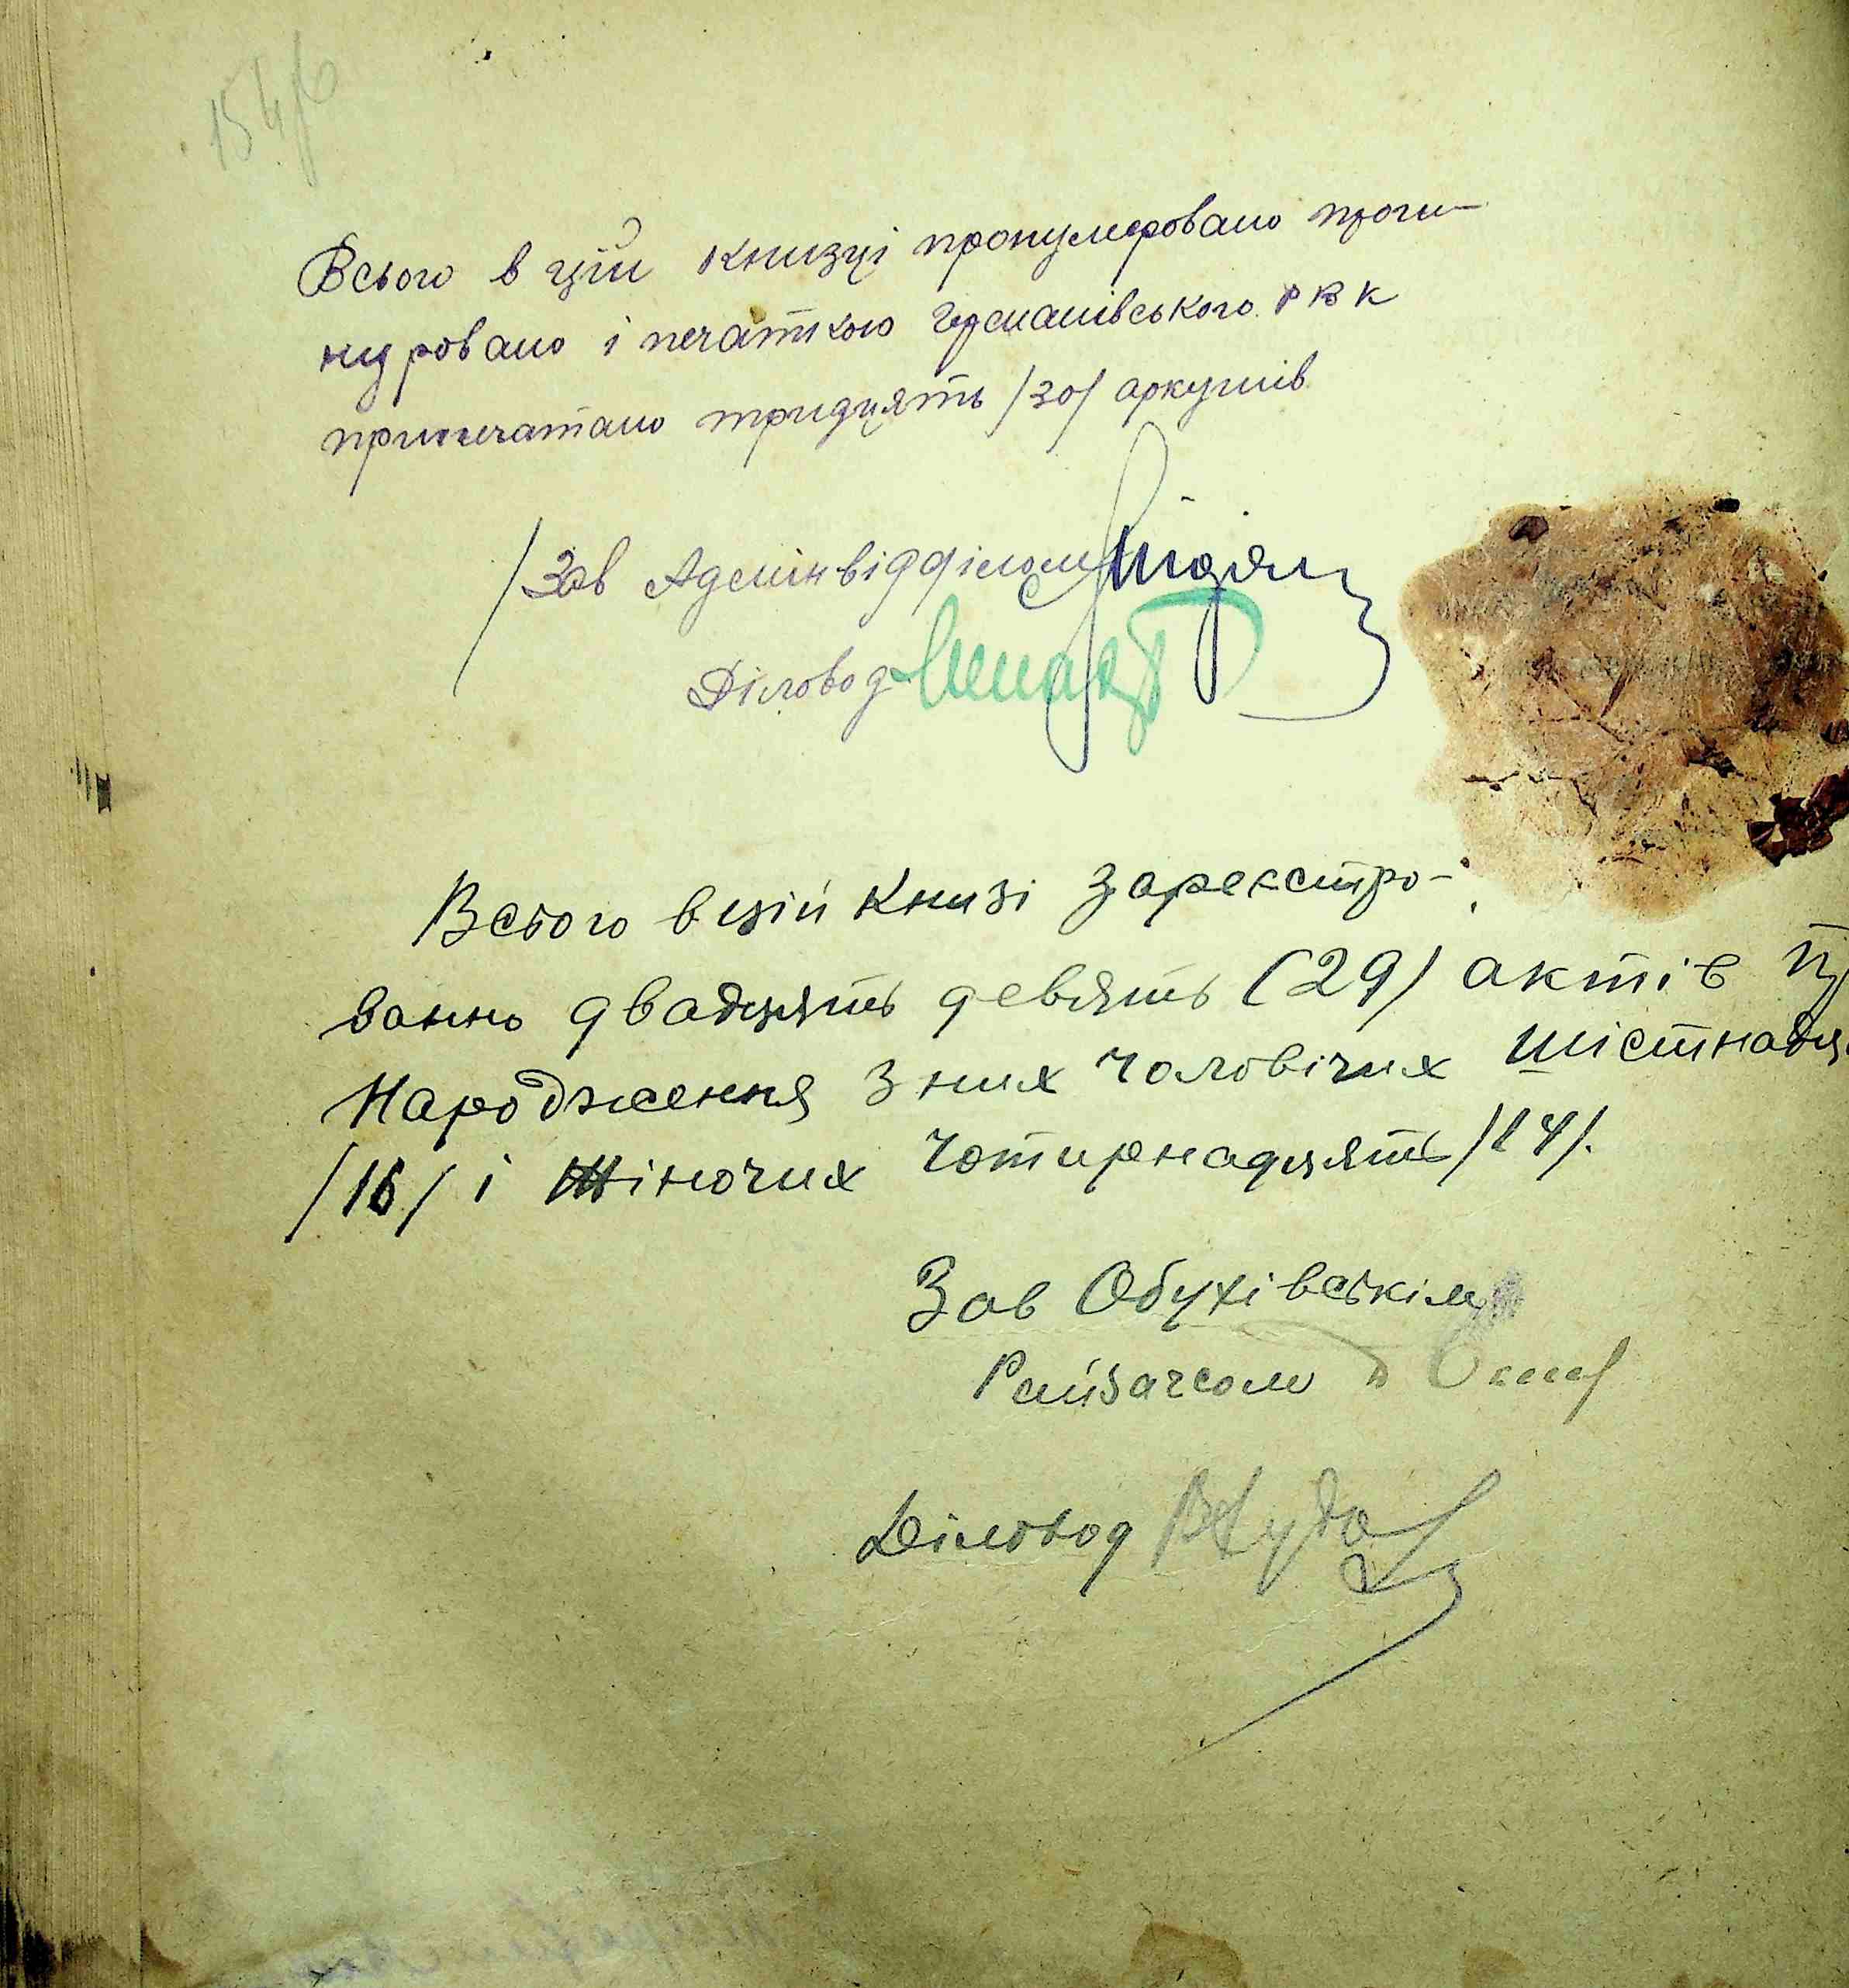 Всього в цій книзці пронумеровано прош-
нуровано і печаткою Германівського РВК
припечатано тридцять /30/ аркушів
/Зав Адмінвідділом
Діловод
Всього в цій книзі зареєстро-
ванно двадцять девять (29) актів
Народження з них чоловічих шістнадця
/16/ і жіночих чотирнадцять /14/.
Зав Обухівськім
Райзагсом
Діловод